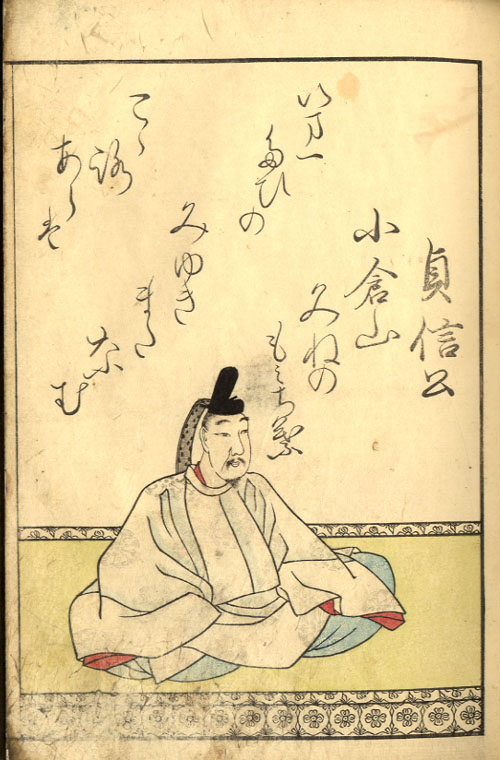 貞信公
小倉山
みねの
もみち葉
こゝ路
あらは
いま一
たひの
みゆき
また
なむ